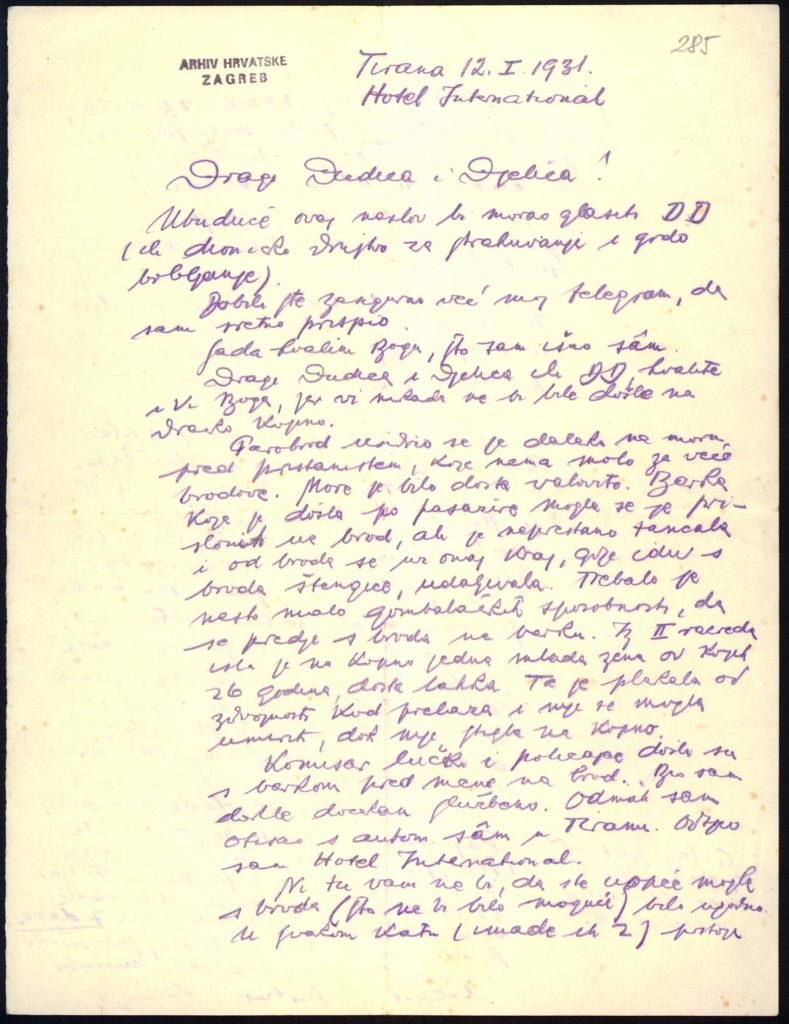 285
ARHIV HRVATSKE
ZAGREB
Tirana 12. I. 1931.
Hotel International
Drage Dudica i Djelica!
Ubuduće ovaj naslov bi morao glasiti DD
(ili dioničko društvo za strahuvanje i grdo
brbljanje).
Dobili ste zangurno već moj telegram, da
sam sretno prispio.
Sada hvalim Bogu, što sam išao sâm.
Drage Dudica i Djelica ili DD hvalite
i Vi Boga, jer vi nikada ne bi bile došle na
dračko kopno.
Parobrod usidrio se je daleko na moru
pred pristaništem, koje nema molo za veće
brodove. More je bilo dosta valovito. Barka
koja je došla po pasažire mogla se je pri-
sloniti na brod, ali je neprestano tancala
i od broda se uz onaj kraj, gdje idu s
broda štengice, udaljivala. Trebalo je
nešto malo gombalačkih sposobnosti, da
se predje s broda na barku. Iz II razreda
išla je na kopno jedna mlada žena od kojih
26 godina, dosta lahka. Ta je plakala od
zdvojnosti kod prelaza i nije se mogla
umirit, dok nije stigla na kopno.
Komisar lučki i policajac došli su
s barkom pred mene na brod. Bio sam
dakle dočekan službeno. Odmah sam
otišao s autom sâm u Tiranu. Odsjeo
sam Hotel International.
Ni tu vam ne bi, da ste uopće mogle
s broda (što ne bi bilo moguće) bilo ugodno.
U svakom katu (imade ih 2) postoji